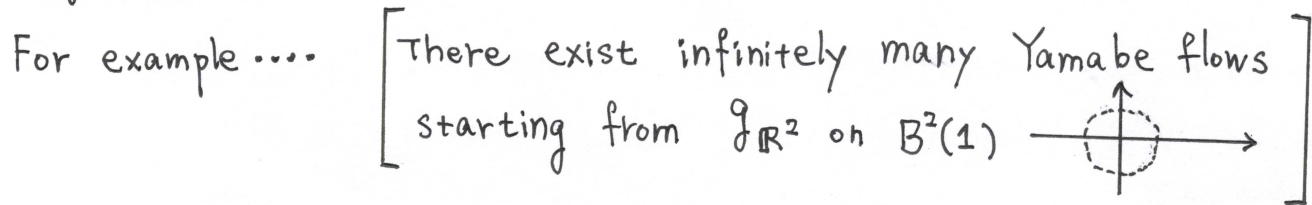 For example .... [There exist infinitely many Yamabe flows
starting from g_ℝ² on B²(1)]